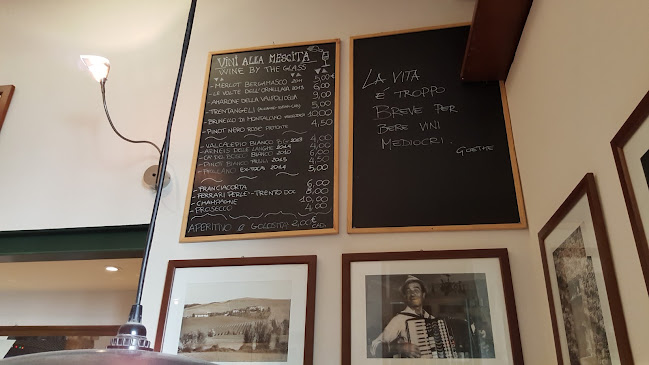 VINI ALLA MESCITA
WINE BY THE GLASS
- MERLOT BERGAMASCO 2011 5,00 €
- LE VOLTE DELL'ORNELLAIA 2013 6,00
- AMARONE DELLA VALPOLICELLA 9,00
- TRENTANGELI 5,00
- BRUNELLO DI MONTALCINO 10,00
- PINOT NERO ROSE' PIEMONTE 4,50
- VALCALEPIO BIANCO 4,00
- ARNEIS DELLE LANGHE 2014 4,00
- CA' DEL BOSCO BIANCO 2010 6,00
- PINOT BIANCO FRIULI 2013 4,50
- 2014 5,00
- FRANCIACORTA 6,00
- FERRARI PERLE' - TRENTO DOC 8,00
- CHAMPAGNE 10,00
- PROSECCO 4,00
APERITIVO E GOLOSITA' 2,00 € CAD.
LA VITA
É TROPPO
BREVE PER
BERE VINI
MEDIOCRI.
GOETHE